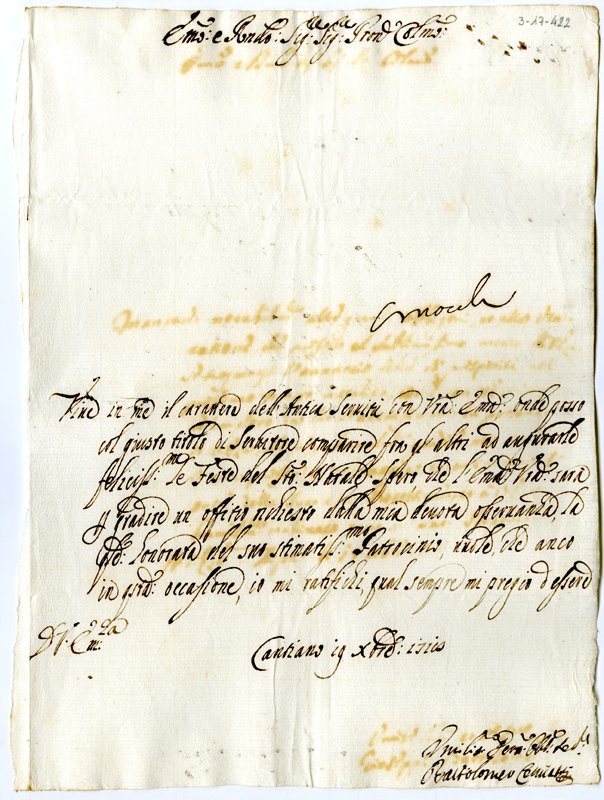 3-17-422
Em̃o: e Rev̄mo: Sig:re Sig:re Pron̄e Col̄mo:
Vive in me il carattere dell'Antica Servitù con Vr̃a: Em̄a: onde posso
col giusto titolo di Servitore comparire fra gl'altri ad augurarle
feliciss:me le Feste del Sto: Natale. Spero che l'Em̄a Vr̃a: sarà
p gradire un offitio richiesto dalla mia devota observanza, la
qle: honorata del suo stimatiss:mo Patrocinio, vuole, che anco
in qsta: occasione, io mi ratifichi, qual sempre mi pregio d'essere
D. V. Em:za
Cantiano 19 Xbre:
Humiliss:o Devo: Obl:o Se:re
Bartolomeo